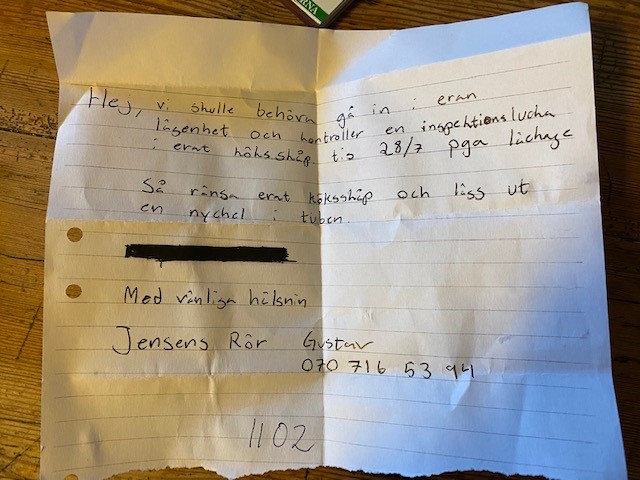 RNA
Hej, vi skulle behöva gå in i eran
lägenhet och kontroller en inspektionslucka
i erat köksskåp tis 28/7 pga läckage
Så ränsa erat köksskåp och läss ut
en nyckel i tuben.
Med vänliga hälsnin
Jensens Rör Gustav
070 716 53 94
1102